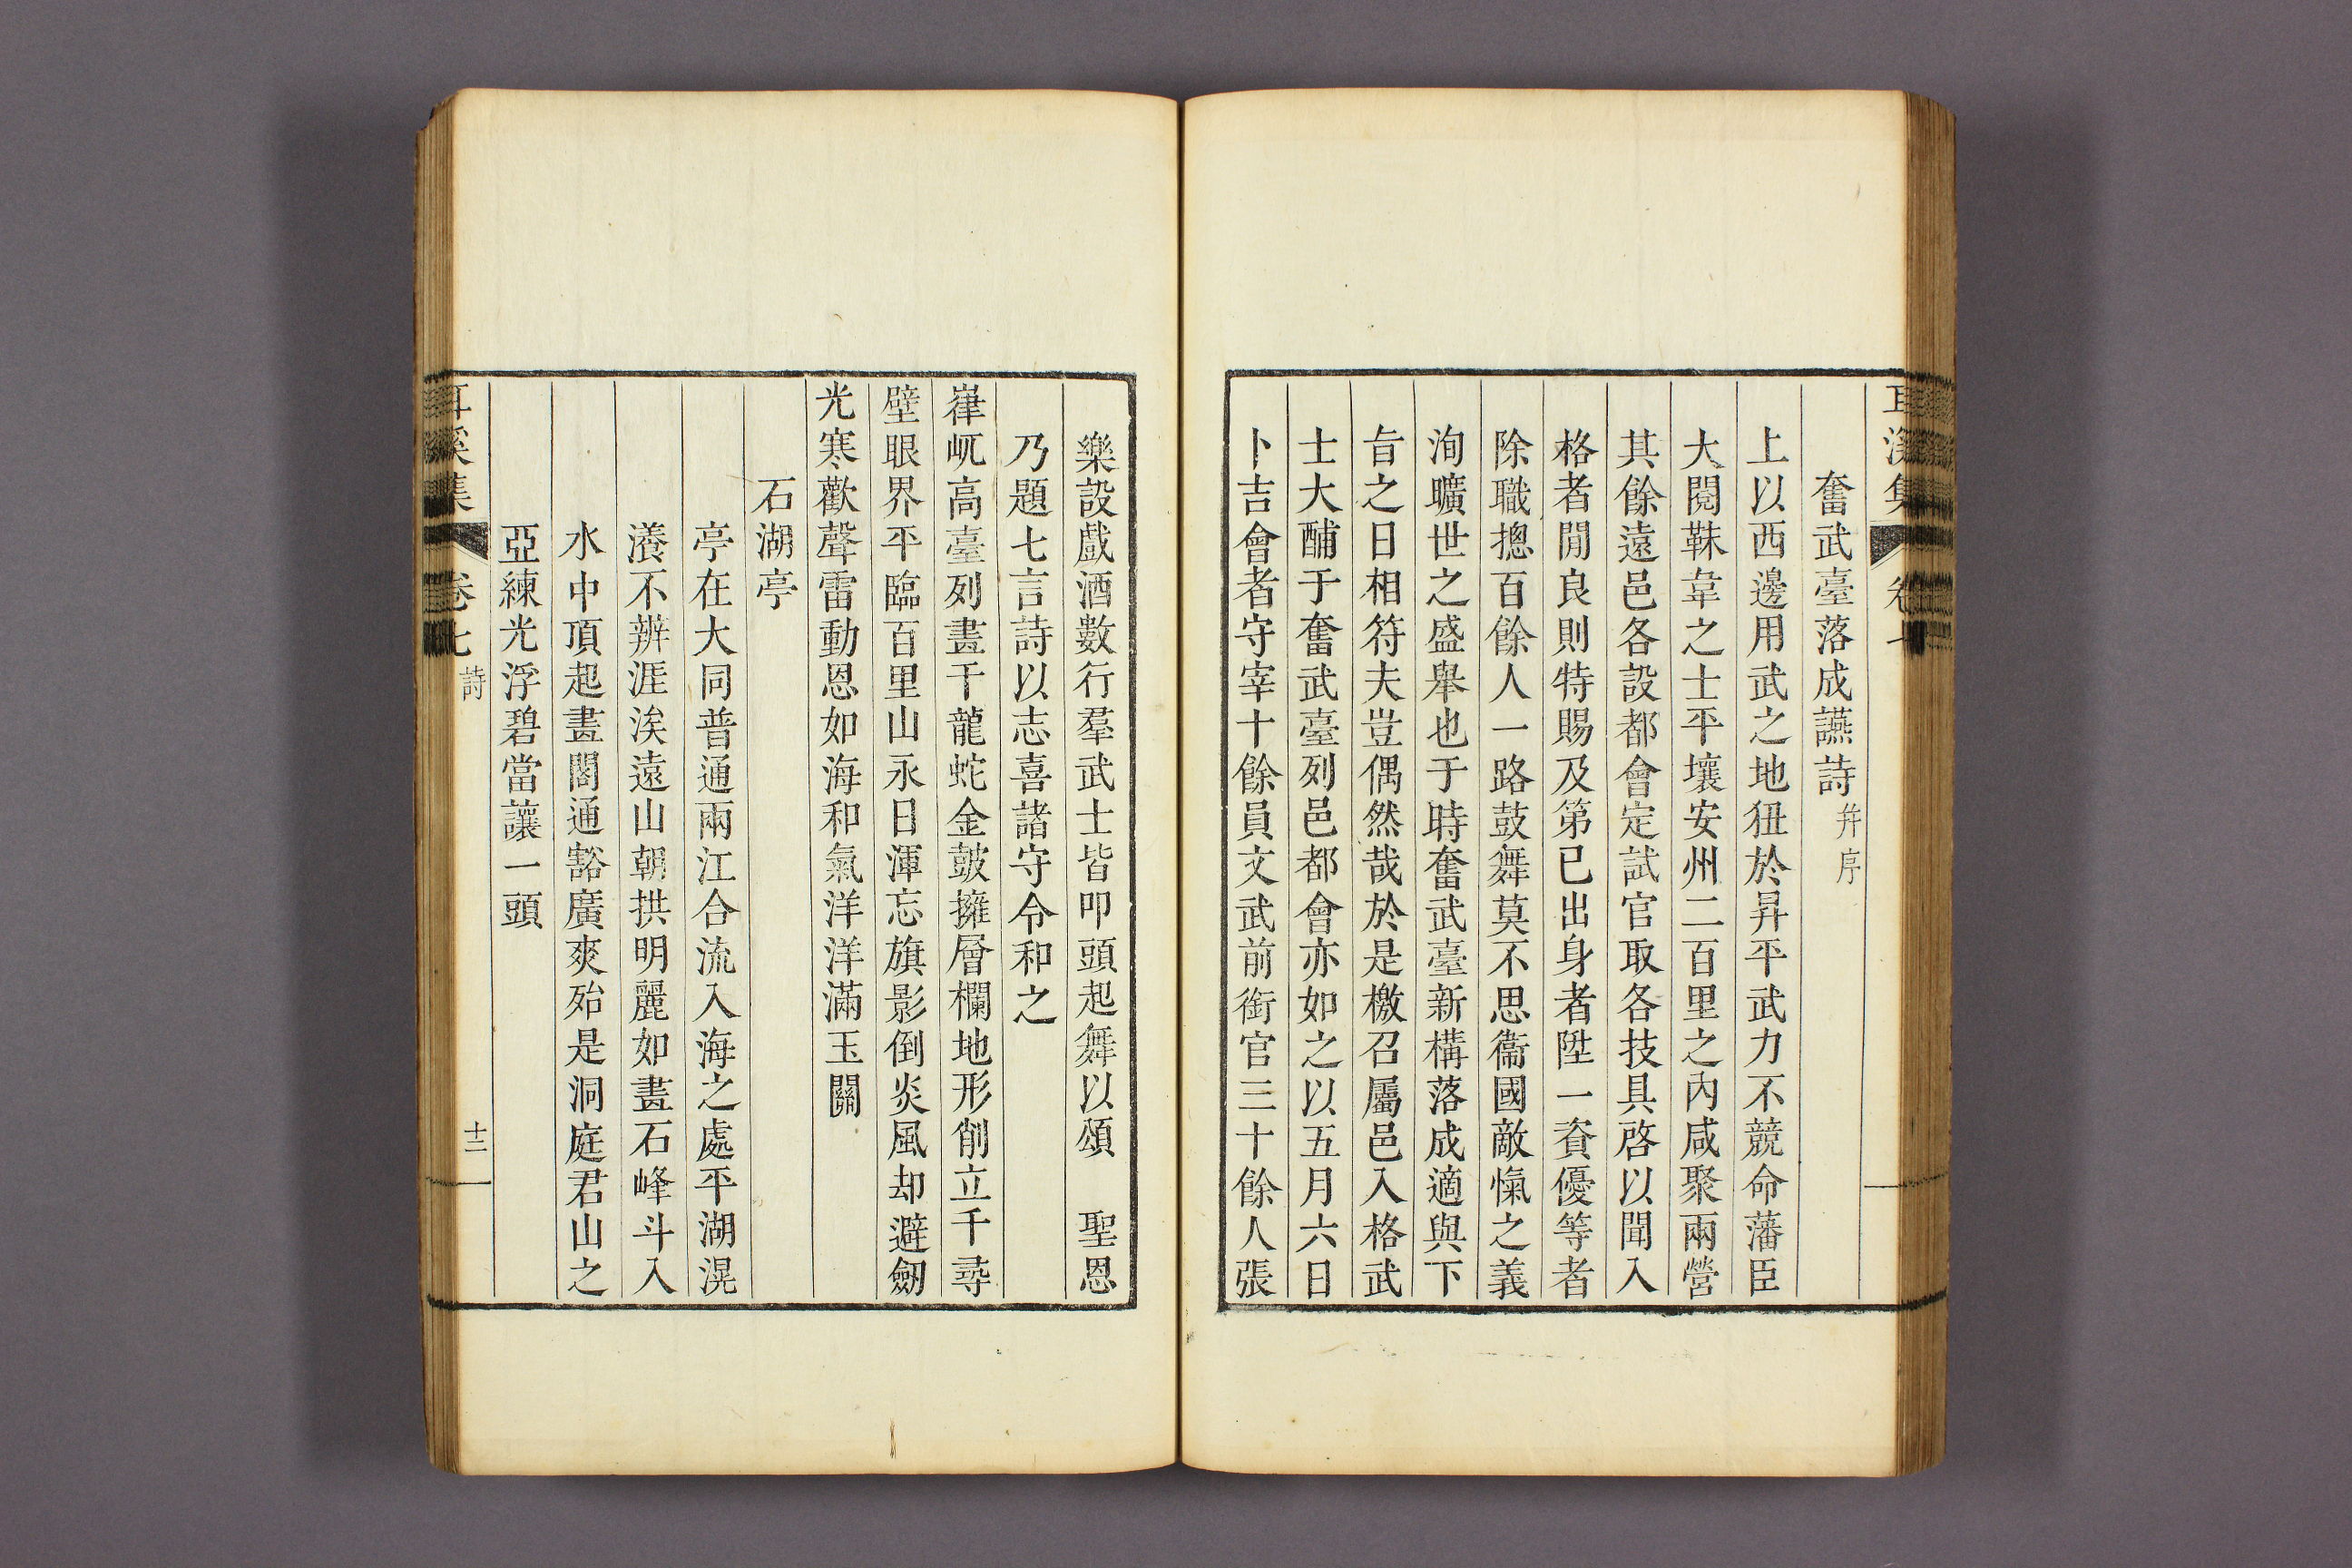 奮武臺落成讌詩 并序
上以西邊用武之地狃於昇平武力不競命藩臣
大閱靺韋之士平壤安州二百里之內咸聚兩營
其餘遠邑各設都會定試官取各技具啓以聞入
格者閒良則特賜及第已出身者陞一資優等者
除職摠百餘人一路鼓舞莫不思衞國敵愾之義
洵曠世之盛舉也于時奮武臺新構落成適與下
㫖之日相符夫豈偶然哉於是檄召屬邑入格武
士大酺于奮武臺列邑都會亦如之以五月六日
卜吉會者守宰十餘員文武前銜官三十餘人張
樂設戲酒數行羣武士皆叩頭起舞以頌 聖恩
乃題七言詩以志喜諸守令和之
嵂屼高臺列畫干龍蛇金皷擁層欄地形削立千尋
壁眼界平臨百里山永日渾忘旗影倒炎風却避劒
光寒歡聲雷動恩如海和氣洋洋滿玉關
石湖亭
亭在大同普通兩江合流入海之處平湖滉
瀁不辨涯涘遠山朝拱明麗如畫石峰斗入
水中頂起畫閣通豁廣爽殆是洞庭君山之
亞練光浮碧當讓一頭
耳溪集 卷七 詩 十二